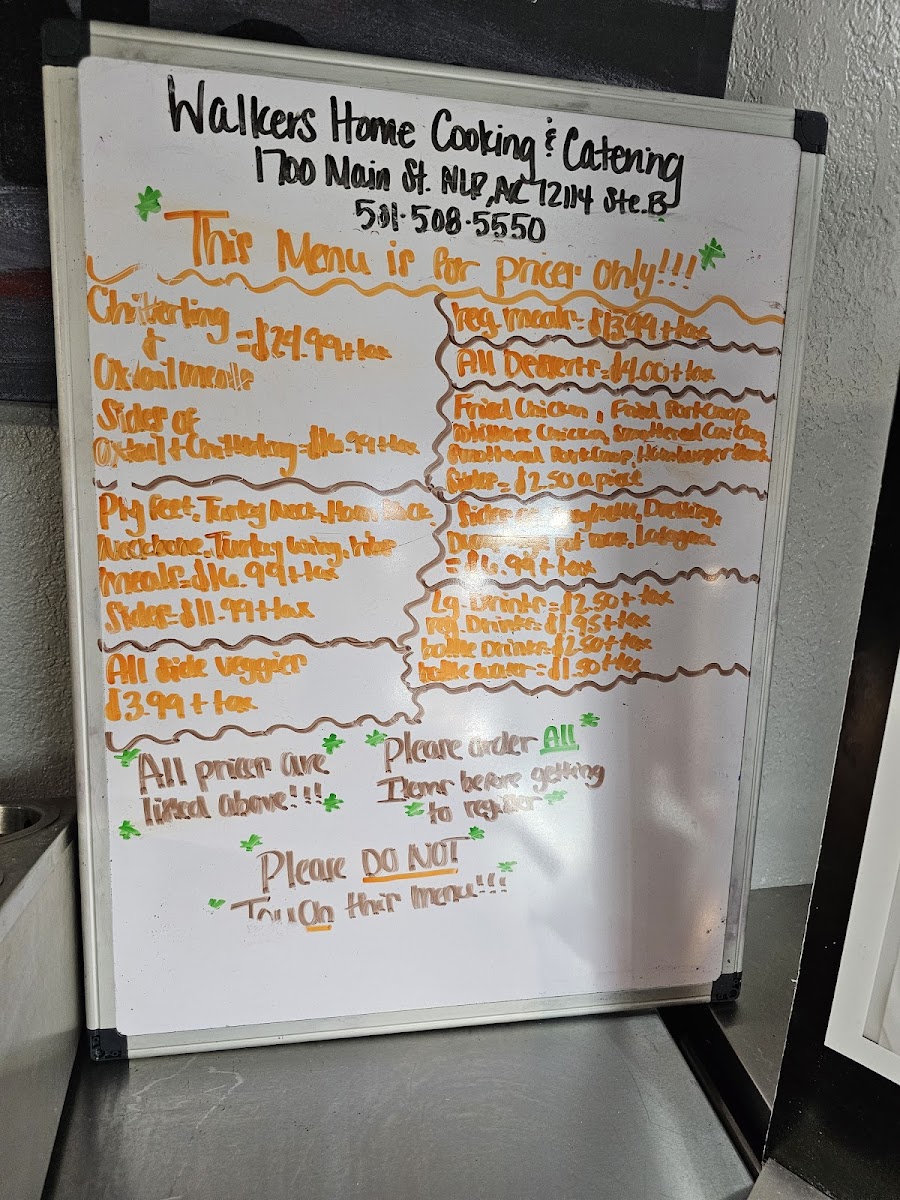 Walkers Home Cooking & Catering
1700 Main St. NLR, AC 72114 Ste. B
501-508-5550
This Menu is for prices only!!!
Chitterling
&
Oxtail meals
= $29.99 + tax
Sides of
Oxtail + Chitterling = $16.99 + tax
Pig feet, Turkey Neck, Ham Hock,
Neckbone, Turkey Wing, Ribs
meals = $16.99 + tax
Sides = $11.99 + tax
All side veggies
$3.99 + tax
reg. meals = $13.99 + tax
All Desserts = $4.00 + tax
Fried Chicken, Fried Porkchop
Chicken, Smothered Chicken,
Smothered Porkchop, Hamburger Steak
Sides = $2.50 a piece
Sides of Dressing,
Lasagna
= $6.99 + tax
Lg. Drinks = $2.50 + tax
reg. Drinks = $1.95 + tax
bottle Drinks = $2.50 + tax
bottle water = $1.50 + tax
All prices are
listed above!!!
Please order All
Items before getting
to register
Please DO NOT
Touch this menu!!!